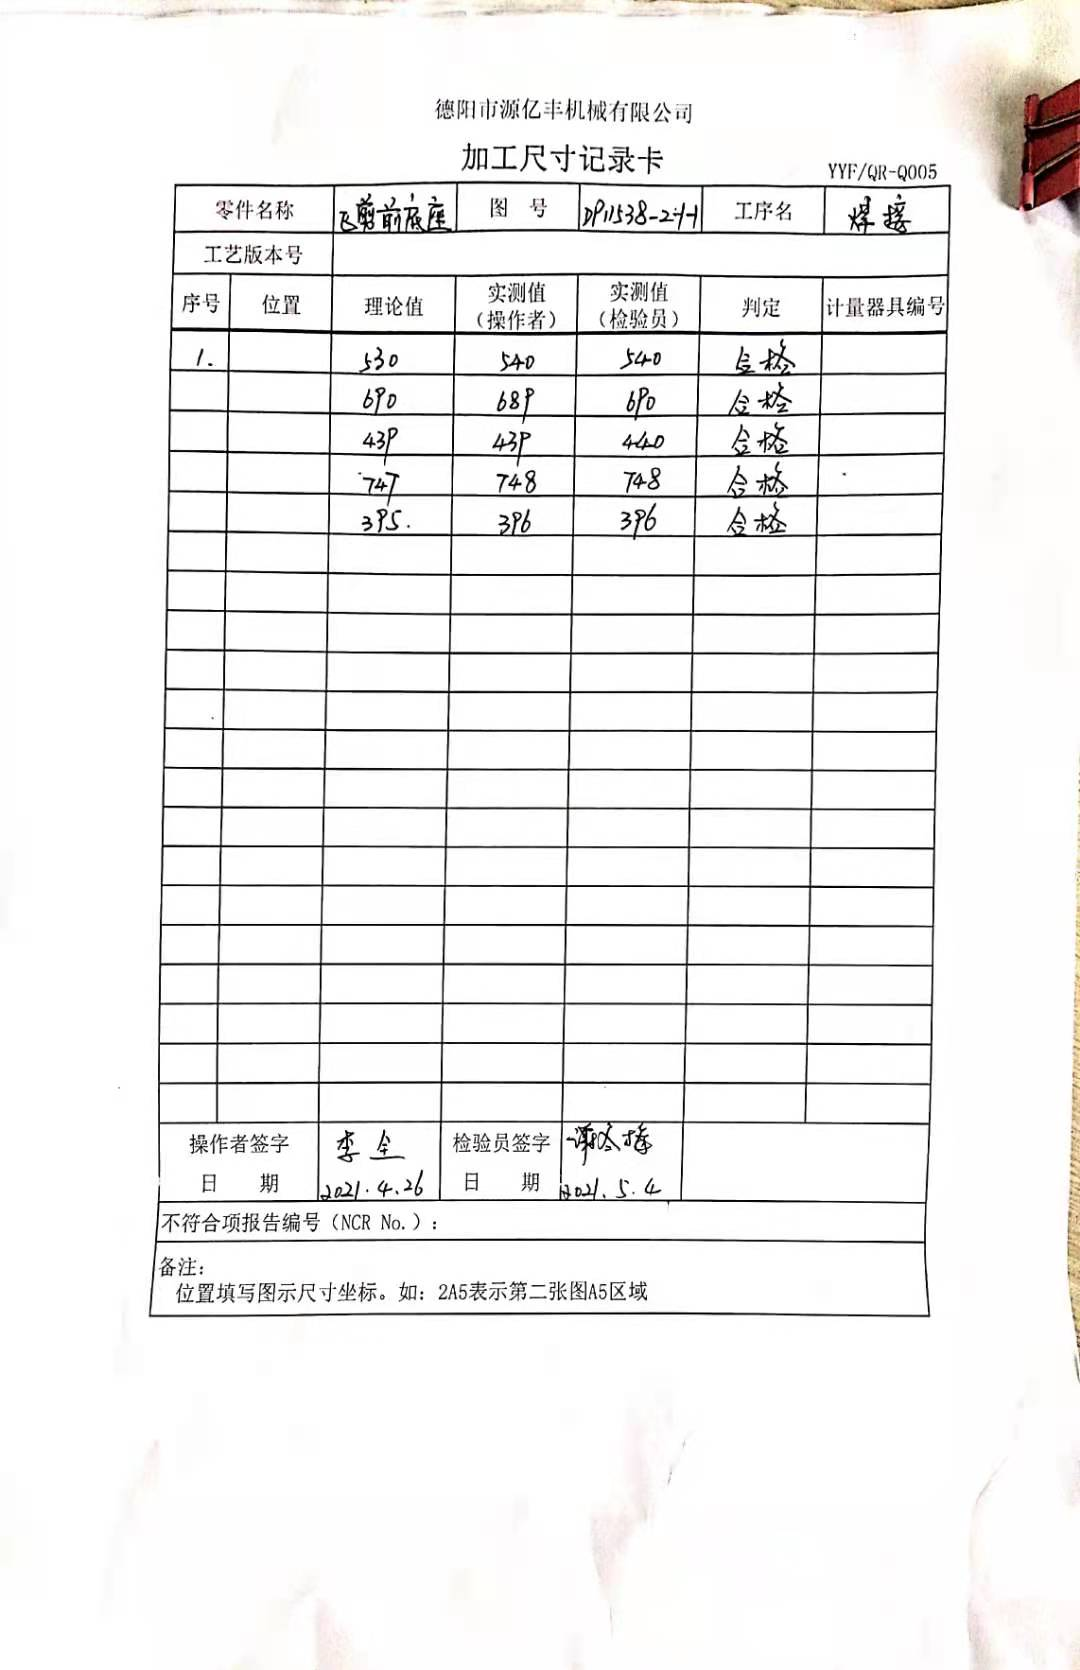 德阳市源亿丰机械有限公司
加工尺寸记录卡
YYF/QR-Q005
零件名称 飞剪前底座 图 号 DP11538-2-1-1 工序名 焊接
工艺版本号
序号 位置 理论值 实测值（操作者） 实测值（检验员） 判定 计量器具编号
1. 530 540 540 合格
690 689 690 合格
439 439 440 合格
747 748 748 合格
395. 396 396 合格
操作者签字 李全 检验员签字
日 期 2021.4.26 日 期 2021.5.4
不符合项报告编号（NCR No.）：
备注：
位置填写图示尺寸坐标。如：2A5表示第二张图A5区域